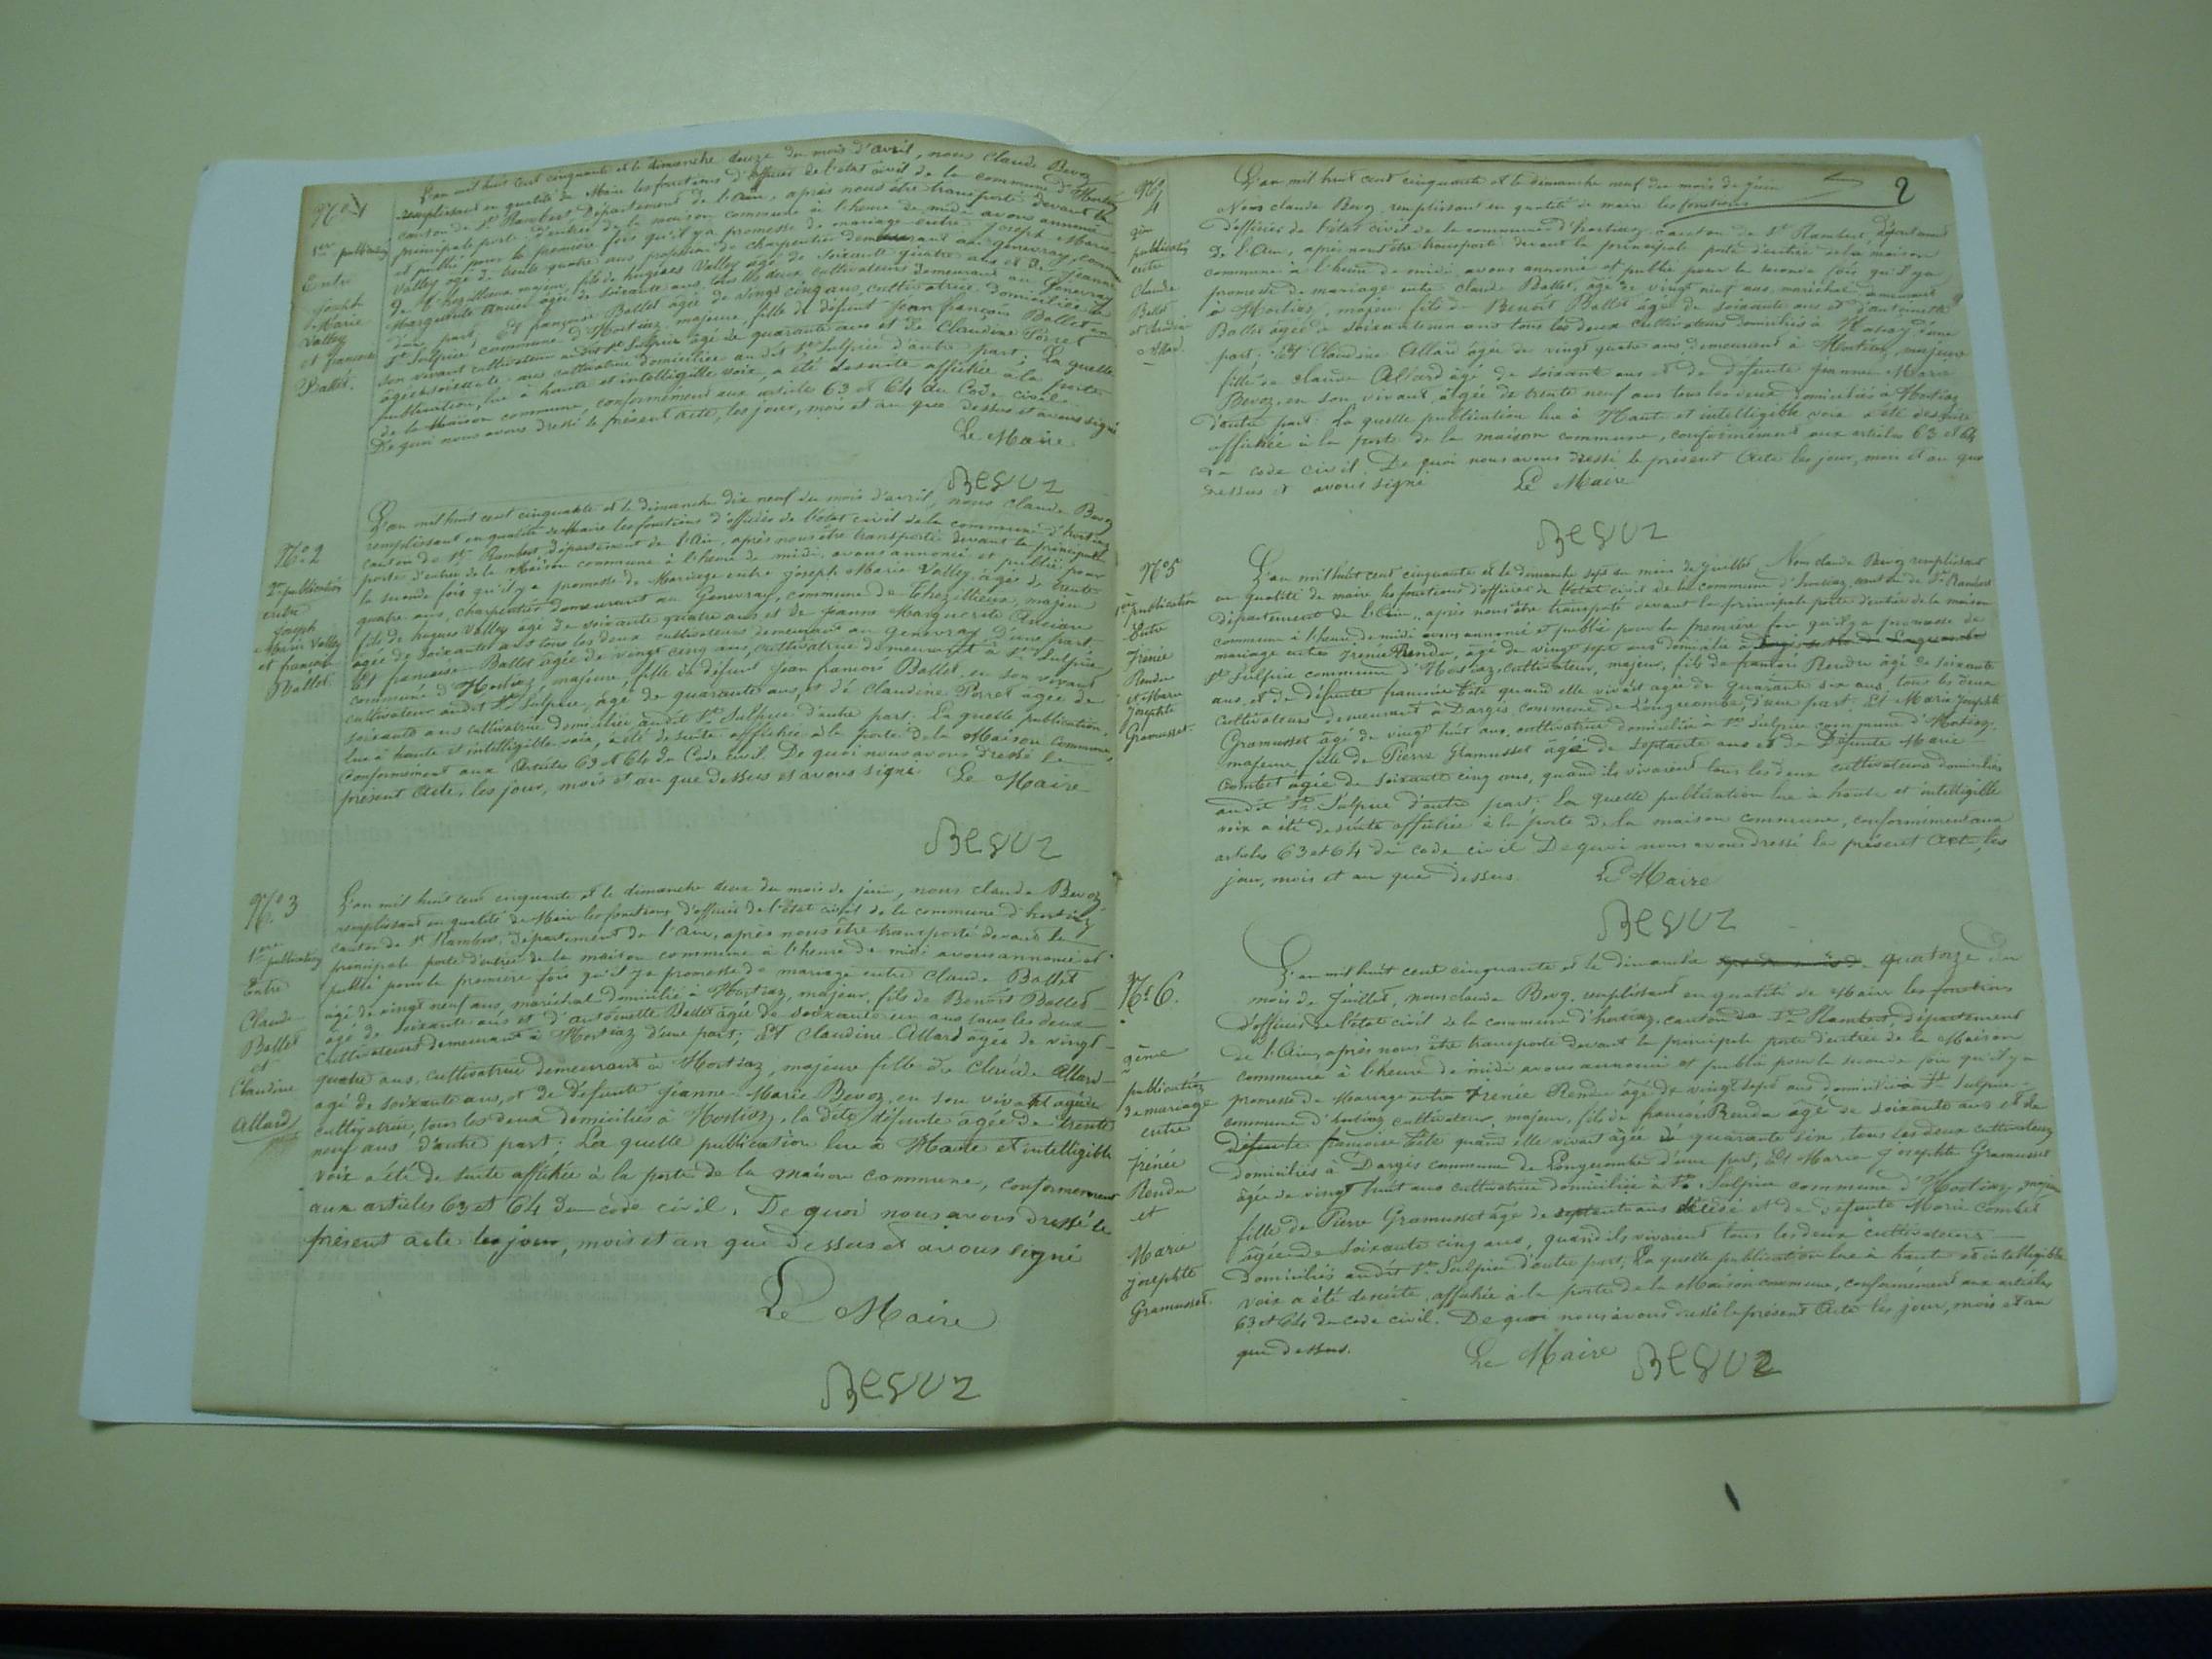 N° 1
1ère publication
Entre
Joseph
Marie
Valley
et françoise
Ballet.
L'an mil huit cent cinquante et le dimanche douze du mois d'avril, nous Claude Bevoz
remplissant en qualité de Maire les fonctions d'officier de l'état civil de la commune d'Hostiaz
canton de St Rambert, Département de l'Ain, après nous être transporté devant la
principale porte d'entrée de la maison commune à l'heure de midi avons annoncé
et publié pour la première fois qu'il y a promesse de mariage entre Joseph Marie
Valley agé de trente quatre ans profession de charpentier demeurant au genevray, commune
de majeur, fils de hugues Valley âgé de soixante quatre ans et de Jeanne
Marguerite Ancian agée de soixante ans, tous les deux cultivateurs demeurant au Genevray
d'une part, Et françoise Ballet agée de vingt cinq ans, cultivatrice domiciliée à
St Sulpice commune d'Hostiaz, majeure, fille de défunt Jean françois Ballet en
son vivant cultivateur audit St Sulpice âgé de quarante ans et de Claudine Perret
âgée soixante ans cultivatrice domiciliée audit St Sulpice d'autre part; La quelle
publication, lue à haute et intelligible voix, a été desuite affichée à la porte
de la Maison commune, conformément aux articles 63 et 64 du Code civil.
De quoi nous avons dressé le présent acte, les jour, mois et an que dessus et avons signé
Le Maire
Bevoz
N° 2
2e publication
entre
Joseph
Marie Valley
et françoise
Ballet.
L'an mil huit cent cinquante et le dimanche dix neuf du mois d'avril, nous Claude Bevoz
remplissant en qualité de Maire les fonctions d'officier de l'état civil de la commune d'hostiaz
canton de St Rambert, Département de l'Ain, après nous être transporté devant la principale
porte d'entrée de la Maison commune à l'heure de midi, avons annoncé et publié pour
la seconde fois qu'il y a promesse de Mariage entre joseph Marie Valley âgé de trente
quatre ans, charpentier demeurant au Genevray, commune de majeur
fils de hugues Valley âgé de soixante quatre ans et de jeanne Marguerite Ancian
âgée de soixante ans tous les deux cultivateurs demeurant au genevray d'une part
Et françoise Ballet âgée de vingt cinq ans, cultivatrice demeurant à St Sulpice
commune d'Hostiaz, majeure, fille de défunt Jean françois Ballet, en son vivant
cultivateur audit St Sulpice, âgé de quarante ans, et de Claudine Perret agée de
soixante ans cultivatrice domiciliée audit St Sulpice d'autre part. La quelle publication,
lue à haute et intelligible voix, a été desuite affichée à la porte de la Maison Commune,
conformément aux Articles 63 et 64 du Code civil. De quoi nous avons dressé le
présent Acte, les jour, mois et an que dessus et avons signé Le Maire
Bevoz
N° 3
1ère publication
Entre
Claude
Ballet
et
Claudine
Allard
L'an mil huit cent cinquante et le dimanche deux du mois de juin, nous claude Bevoz
remplissant en qualité de Maire les fonctions d'officier de l'état civil de la commune d'hostiaz
canton de St Rambert, Département de l'Ain, après nous être transporté devant la
principale porte d'entrée de la maison commune à l'heure de midi avons annoncé et
publié pour la première fois qu'il y a promesse de mariage entre Claude Ballet
agé de vingt neuf ans, maréchal domicilié à Hostiaz, majeur, fils de Benoit Ballet
agé de soixante ans et d'antoinette Ballet agée de soixante un ans tous les deux
cultivateurs demeurant à Hostiaz d'une part; Et Claudine Allard agée de vingt
quatre ans, cultivatrice demeurant à Hostiaz, majeure fille de Claude Allard
agé de soixante ans, et de défunte jeanne Marie Bevoz, en son vivant agée de
cultivatrice, tous les deux domiciliés à Hostiaz, la dite défunte âgée de trente
neuf ans d'autre part; La quelle publication lue à Haute et intelligible
voix a été de suite affichée à la porte de la maison commune, conformément
aux articles 63 et 64 du code civil. De quoi nous avons dressé le
présent acte les jour, mois et an que dessus et avons signé
Le Maire
Bevoz
2
N°
4
2ème
publication
entre
Claude
Ballet
et Claudine
Allard
L'an mil huit cent cinquante et le dimanche neuf du mois de juin
Nous claude Bevoz, remplissant en qualité de maire les fonctions
d'officier de l'état civil de la commune d'hostiaz canton de St Rambert, département
de l'Ain, après nous être transporté devant la principale porte d'entrée de la maison
commune à l'heure de midi, avons annoncé et publié pour la seconde fois qu'il y a
promesse de mariage entre claude Ballet, âgé de vingt neuf ans, maréchal demeurant
à Hostiaz, majeur fils de Benoit Ballet âgé de soixante ans et d'antoinette
Ballet agée de soixante un ans tous les deux cultivateurs domiciliés à d'une
part; Et Claudine Allard âgée de vingt quatre ans demeurant à Hostiaz, majeure
fille de Claude Allard âgé de soixante ans et de défunte jeanne Marie
Bevoz, en son vivant, âgée de trente neuf ans tous les deux domiciliés à Hostiaz
d'autre part. La quelle publication lue à Haute et intelligible voix a été desuite
affichée à la porte de la maison commune, conformément aux articles 63 et 64
du code civil. De quoi nous avons dressé le présent Acte les jour, mois et an que
dessus et avons signé Le Maire
Bevoz
N° 5
1ère
publication
Entre
Irénée
Rendu
et Marie
Josephte
Gramusset.
L'an mil huit cent cinquante et le dimanche sept du mois de juillet, Nous claude Bevoz remplissant
en qualité de maire les fonctions d'officier de l'état civil de la commune d'hostiaz, canton de St Rambert
département de l'Ain, après nous être transporté devant la principale porte d'entrée de la maison
commune à l'heure de midi avons annoncé et publié pour la première fois qu'il y a promesse de
mariage entre Irénée Rendu, âgé de vingt sept ans domicilié à
St Sulpice commune d'Hostiaz, cultivateur, majeur, fils de francois Rendu âgé de soixante
ans, et de défunte francoise quand elle vivait agée de quarante six ans tous les deux
cultivateurs demeurant à Dargis commune de Longecombe, d'une part. Et Marie Josephte
Gramusset âgé de vingt huit ans, cultivatrice domiciliée à St Sulpice commune d'Hostiaz,
majeure, fille de Pierre Gramusset agé de septante ans et de Défunte Marie
Combet agée de soixante cinq ans, quand ils vivaient tous les deux cultivateurs domiciliés
audit St Sulpice d'autre part. La quelle publication lue à haute et intelligible
voix a été desuite affichée à la porte de la maison commune, conformément aux
articles 63 et 64 du code civil De quoi nous avons dressé le présent Acte, les
jour, mois et an que dessus. Le Maire
Bevoz
N° 6.
2ème
publication
de mariage
entre
Irénée
Rendu
et
Marie
josephte
Gramusset.
L'an mil huit cent cinquante et le dimanche quatorze du
mois de Juillet, nous claude Bevoz, remplissant en qualité de Maire les fonctions
d'officier de l'état civil de la commune d'hostiaz, canton de St Rambert, département
de l'Ain, après nous être transporté devant la principale porte d'entrée de la Maison
commune à l'heure de midi avons annoncé et publié pour la seconde fois qu'il y a
promesse de Mariage entre Irénée Rendu âgé de vingt sept ans domicilié à St Sulpice
commune d'hostiaz cultivateur, majeur, fils de francois Rendu âgé de soixante ans et de
défunte francoise quand elle vivait âgée de quarante six tous les deux cultivateurs
domiciliés à Dargis commune de Longecombe d'une part; Et Marie Josephte Gramusset
âgée de vingt huit ans cultivatrice domiciliée à St Sulpice commune d'Hostiaz, majeure
fille de Pierre Gramusset âgé de septante ans décédé et de défunte Marie Combet
agée de soixante cinq ans, quand ils vivaient tous les deux cultivateurs
Domiciliés audit St Sulpice d'autre part, La quelle publication lue à haute et intelligible
voix a été desuite, affichée à la porte de la Maison commune, conformément aux articles
63 et 64 du code civil. De quoi nous avons dressé le présent Acte les jour, mois et an
que dessus. Le Maire Bevoz